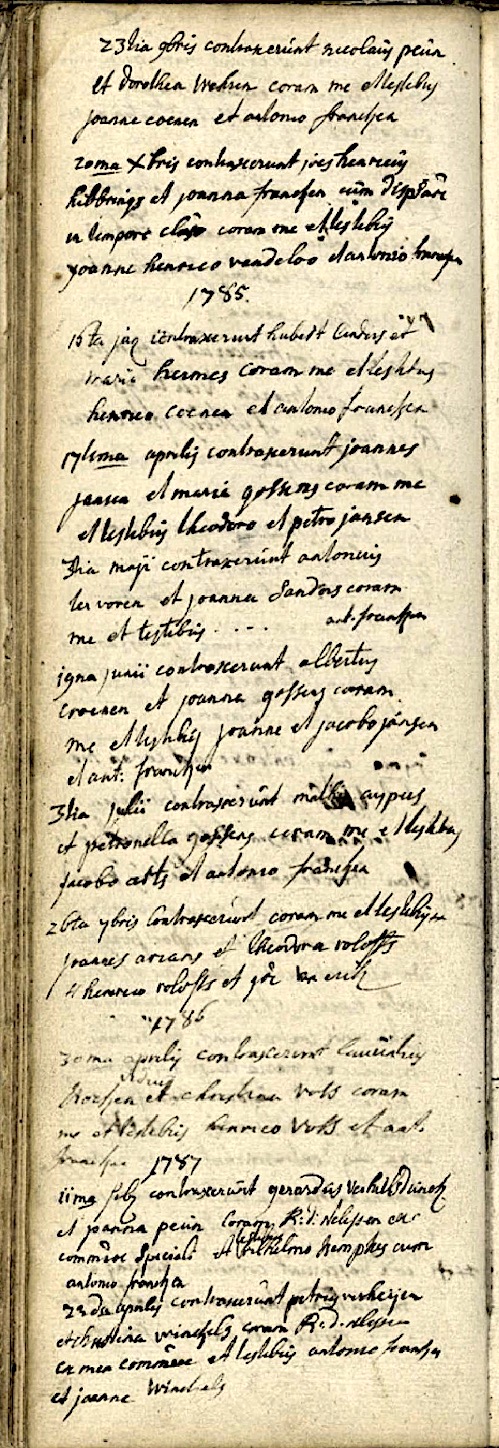 23tia 9bris contraxerunt nicolaus peün
et dorothea Wehren coram me et testibus
joanne coenen et antonio franssen
20ma Xbris contraxerunt joës henricus
hibbrings et joanna franssen cum
in tempore clauso coram me et testibus
joanne henrico vandeloo et antonio franssen
1785.
16ta contraxerunt hubert et
maria hermes coram me et testibus
henrico coenen et antonio franssen
aprilis contraxerunt joannes
jansen et maria gossens coram me
et testibus theodoro et petro jansen
3tia maji contraxerunt antonius
ter voren et joanna Sanders coram
me et testibus . . . . ant. franssen
19na junii contraxerunt albertus
croenen et joanna gossens coram
me et testibus joanne et jacobo jansen
et ant: franssen
31tia julii contraxerunt cuypers
et petronella gossens coram me et testibus
jacobo aerts et antonio franssen
26ta 7bris contraxerunt coram me et testibus
joannes arians et theodora roloffs
henrico roloffs et
1786
30ma aprilis contraxerunt
et christina Vols coram
me et testibus henrico Vols et ant.
franssen 1787
11ma feb contraxerunt gerardus
et joanna peün coram R: d: nelissen ex
comm̄ne speciali et testibus wilhelmo kemphes cum
antonio franssen
22da aprilis contraxerunt petrus verheijen
et christina winckels coram R: d: nelissen
ex mea comm̄ne et testibus antonio franssen
et joanne winckels